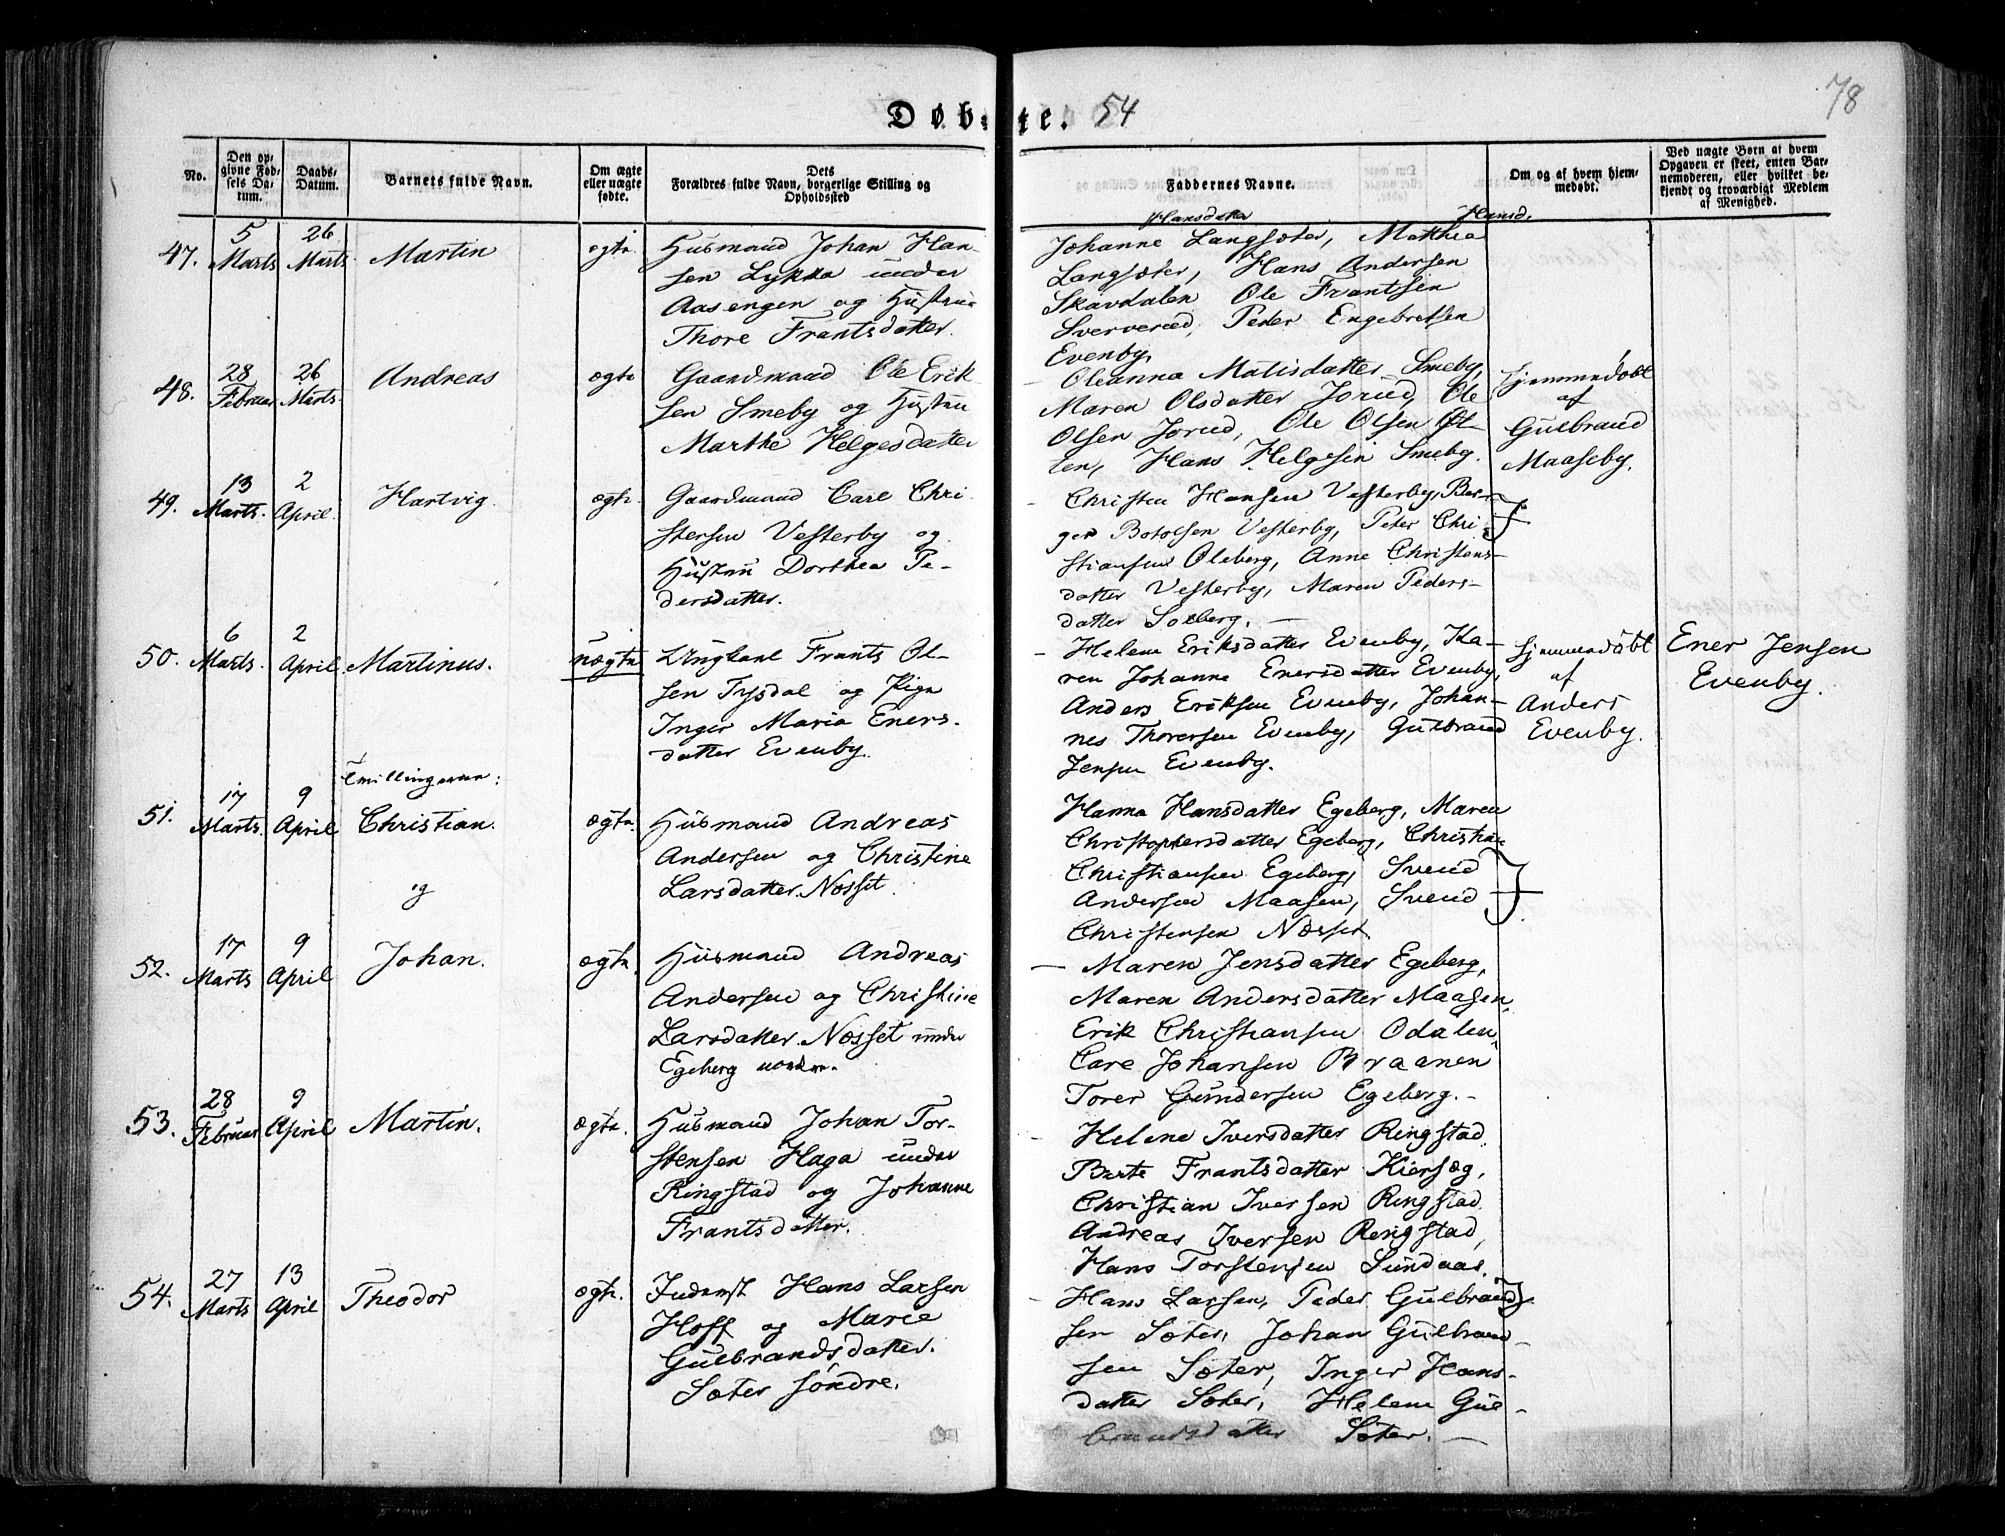 78
Døbte. 54
No.
Den op-
givne Fød-
sels Da-
tum.
Daabs-
Datum.
Barnets fulde Navn.
Om ægte
eller uægte
fødte.
Dets
Forældres fulde Navn, borgerlige Stilling og
Opholdssted
Faddernes Navne.
Om og af hvem hjem-
medøbt.
Ved uægte Børn af hvem
Opgaven er skeet, enten Bar-
nemoderen, eller hvilket be-
kjendt og troværdigt Medlem
af Menighed.
47.
5
Marts
26
Marts
Martin
ægte
Husmand Johan Han-
sen Lykka under
Aasengen og Hustrue
Thore Frantsdatter.
Hansdatter Hansd.
Johanne Langsæter, Mathea
Langsæter, Hans Andersen
Skavdalen Ole Frantsen
Sververud, Peder Engebretsen
Evenby,
48.
28
Februar
26
Marts.
Andreas
ægte
Gaardmand Ole Erik
sen Smeby og Hustru
Marthe Helgesdatter
Oleanna Matisdatter Smeby,
Maren Olsdatter Jorud, Ole
Olsen Jorud, Ole Olsen Øst-
len, Hans Helgesen Smeby.
Hjemmedøbt
af
Gulbrand
Maaseby.
49.
13
Marts.
2
April.
Hartvig.
ægte
Gaardmand Carl Chri
stersen Vesterby og
Hustru Dorthea Pe-
dersdatter.
Christen Hansen Vesterby, Bør-
ger Botolsen Vesterby, Peter Chri-
stiansen Oleberg, Anne Christens-
datter Vesterby, Maren Peders-
datter Solberg. —
50.
6
Marts.
2
April
Martinus.
uægte
Ungkarl Frants Ol-
sen Tysdal og Pige
Inger Maria Eners-
datter Evenby.
Helene Eriksdatter Evenby, Ka-
ren Johanne Enersdatter Evenby,
Anders Eriksen Evenby, Johan-
nes Thoresen Evenby, Gulbrand
Jensen Evenby.
Hjemmedøbt
af
Anders
Evenby.
Ener Jensen
Evenby.
Tvillingerne:
51.
17
Marts.
9
April
Christian.
og
ægte.
Husmand Andreas
Andersen og Christine
Larsdatter Næsset.
Hanna Hansdatter Egeberg, Maren
Christophersdatter Egeberg, Christian
Christiansen Egeberg, Svend
Andersen Maasen, Svend
Christensen Næsset.
52.
17
Marts
9
April
Johan.
ægte.
Husmand Andreas
Andersen og Christine
Larsdatter Næsset under
Egeberg nordre.
— Maren Jensdatter Egeberg,
Maren Andersdatter Maasen,
Erik Christiansen Odalen,
Carl Johansen Braanen
Torer Gundersen Egeberg. -
53.
28
Februar
9
April
Martin.
ægte.
Husmand Johan Tor-
stensen Haga under
Ringstad og Johanne
Frantsdatter.
Helene Iversdatter Ringstad,
Berte Frantsdatter Kiersæg,
Christian Iversen Ringstad
Andreas Iversen Ringstad,
Hans Torstensen Sundaas.
54.
27
Marts
13
April
Theodor
ægte.
Inderst Hans Larsen
Hoff og Marie
Gulbrandsdatter.
Sæter søndre.
Hans Larsen, Peder Gulbrand
sen Sæter, Johan Gulbrand-
sen Sæter, Inger Hans-
datter Sæter, Helene Gul-
brandsdatter Sæter. —